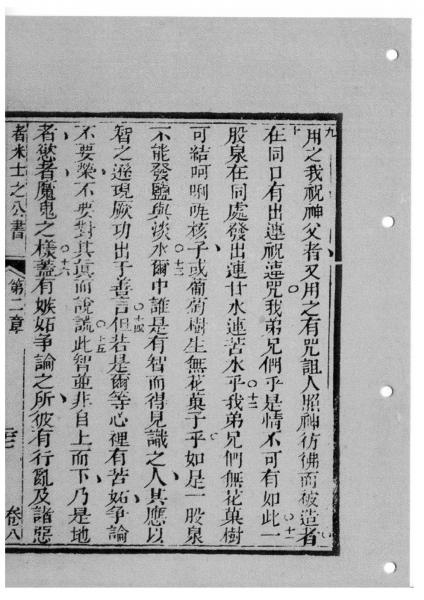 九
用之我祝神父者又用之有咒詛人照神彷彿而被造者
十
十一
在同口有出連祝連咒我弟兄們乎是情不可有如此一
十二
股泉在同處發出連甘水連苦水乎我弟兄們無花菓樹
可結呵唎吔核子或葡萄樹生無花菓子乎如是一股泉
十三
不能發鹽與淡水爾中誰是有智而得見識之人其應以
十四
智之遜現厥功出于善言但若是爾等心裡有苦妬爭論
十五
不要榮不要對其真而說謊此智並非自上而下乃是地
十六
者慾者魔鬼之樣蓋有嫉妬爭論之所彼有行亂及諸惡
者米士之公書 第二章 卷八